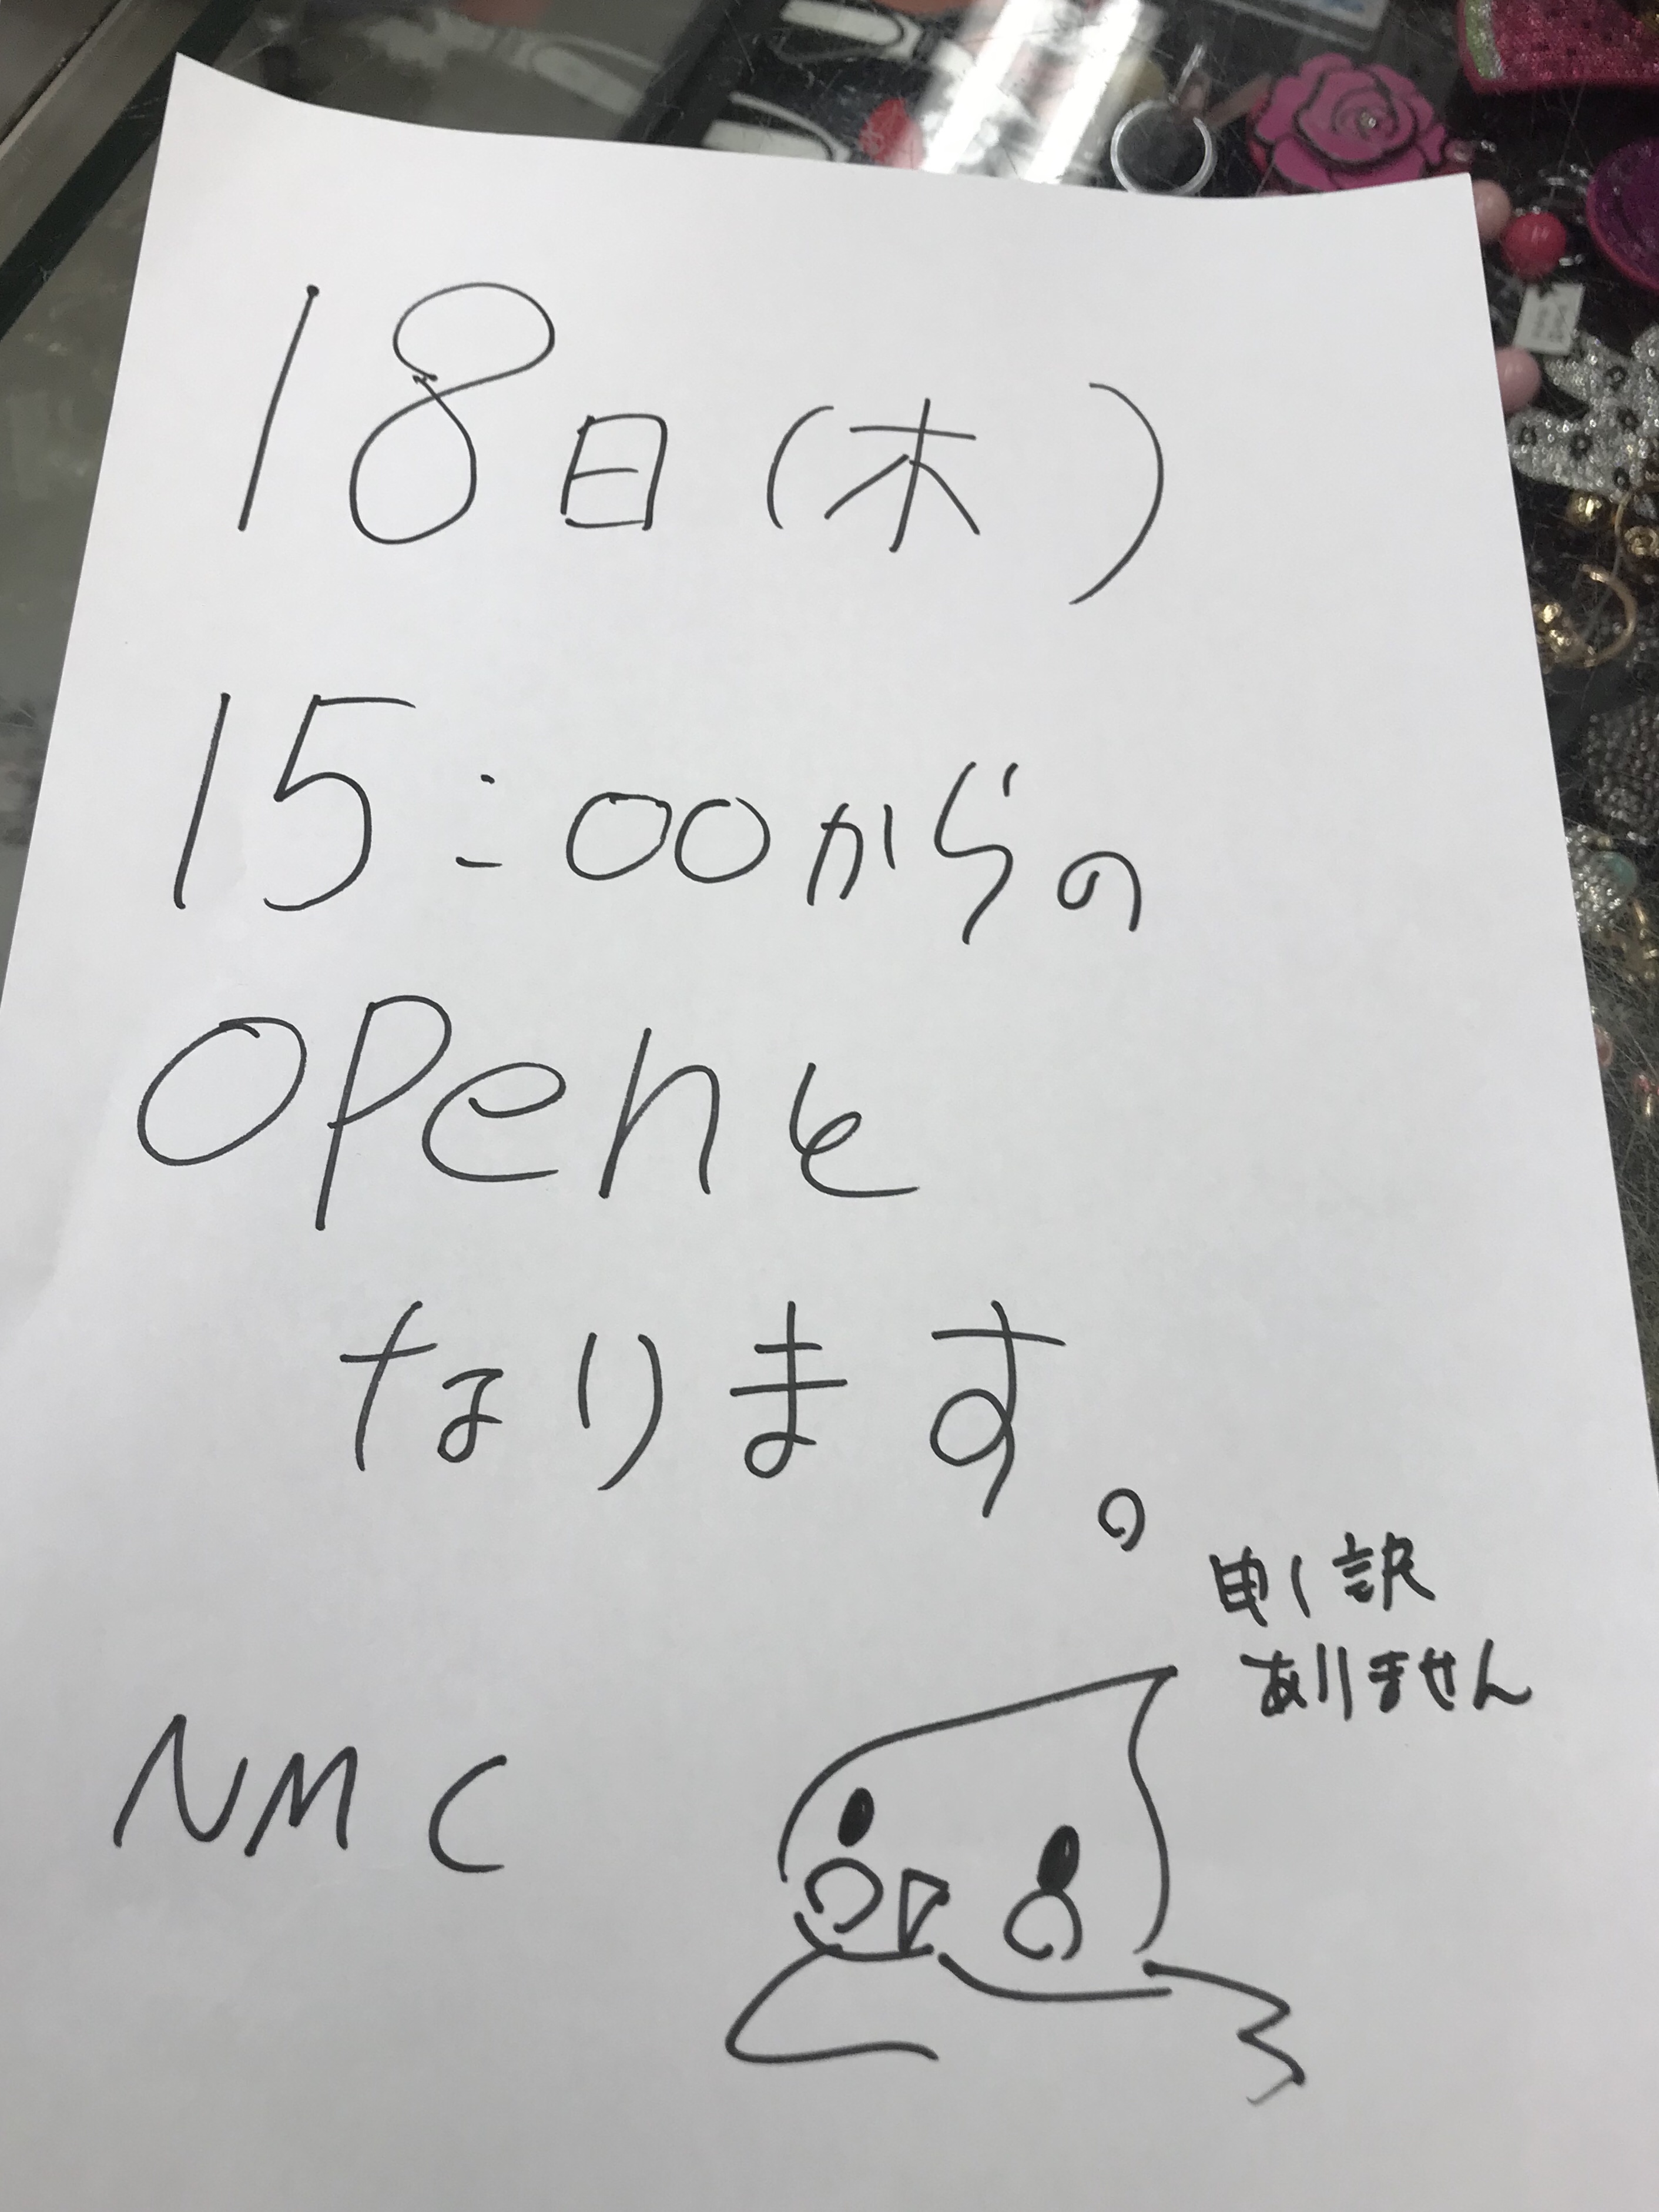 18日(木)
15:00からの
openと
なります。
申し訳
ありません
NMC